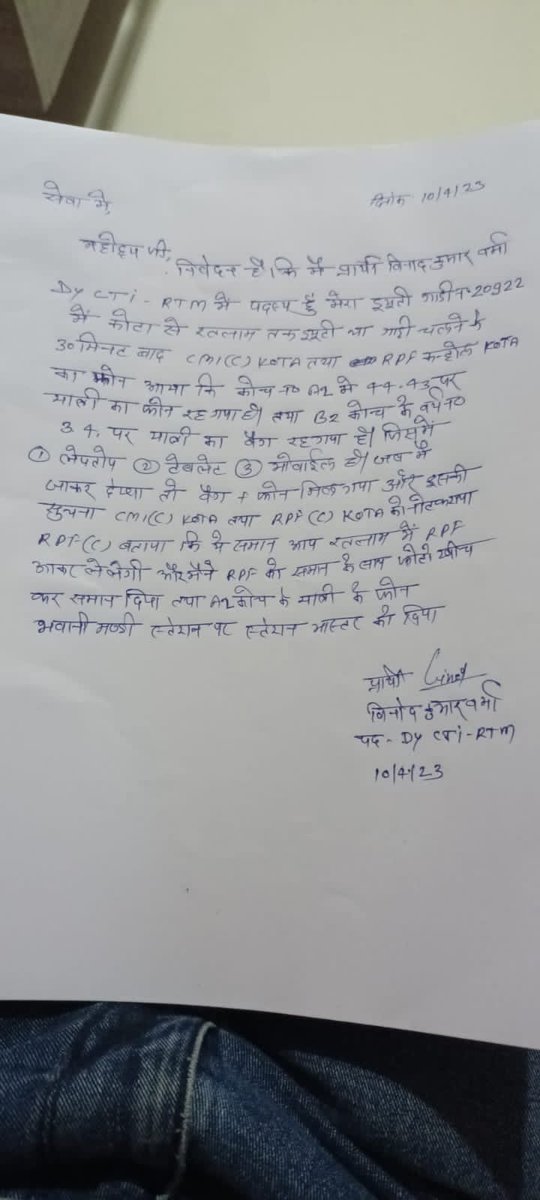 सेवा में,
दिनांक 10/4/23
महोदय जी,
निवेदन है कि मैं प्रार्थी विनोद कुमार वर्मा
Dy CTi - RTM में पदस्थ हूँ मेरा ड्यूटी गाडी नं 20922
में कोटा से रतलाम तक ड्यूटी था गाडी चलने के
30 मिनट बाद CMI(C) KOTA तथा RPF कन्ट्रोल KOTA
का फोन आया कि कोच नं A2 में 44.43 पर
यात्री का फोन रह गया है। तथा B2 कोच के बर्थ नं
34. पर यात्री का बैग रह गया है। जिसमें
① लेपटोप ② टेबलेट ③ मोबाईल है। जब मैं
जाकर देखा तो बैग + फोन मिल गया और इसकी
सुचना CMI(C) KOTA तथा RPF(C) KOTA को नोट कराया
RPF(C) बताया कि ये समान आप रतलाम में RPF
आकर ले लेगी और मैंने RPF को समान के साथ फोटो खीच
कर समान दिया तथा A2 कोच के यात्री के फोन
भवानी मण्डी स्टेशन पर स्टेशन मास्टर को दिया
प्रार्थी
विनोद कुमार वर्मा
पद - Dy CTi - RTM
10/4/23